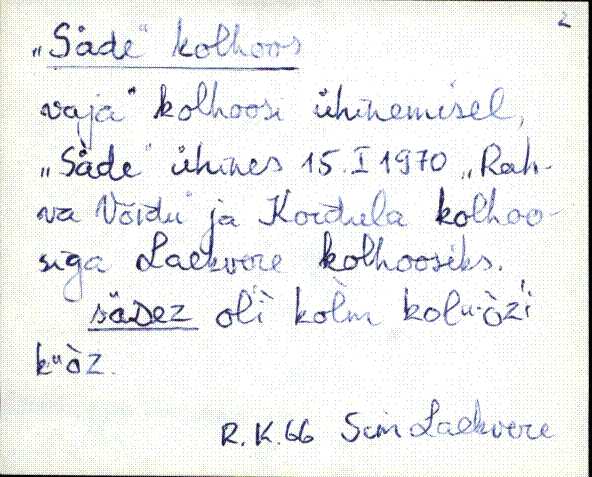 2
„Säde" kolhoos
vaja" kolhoosi ühinemisel,
„Säde" ühines 15.I 1970 „Rah-
va Võidu" ja Koidula kolhoo-
siga Laekvere kolhoosiks.
oli kolm
R.K. 66 Sim Laekvere